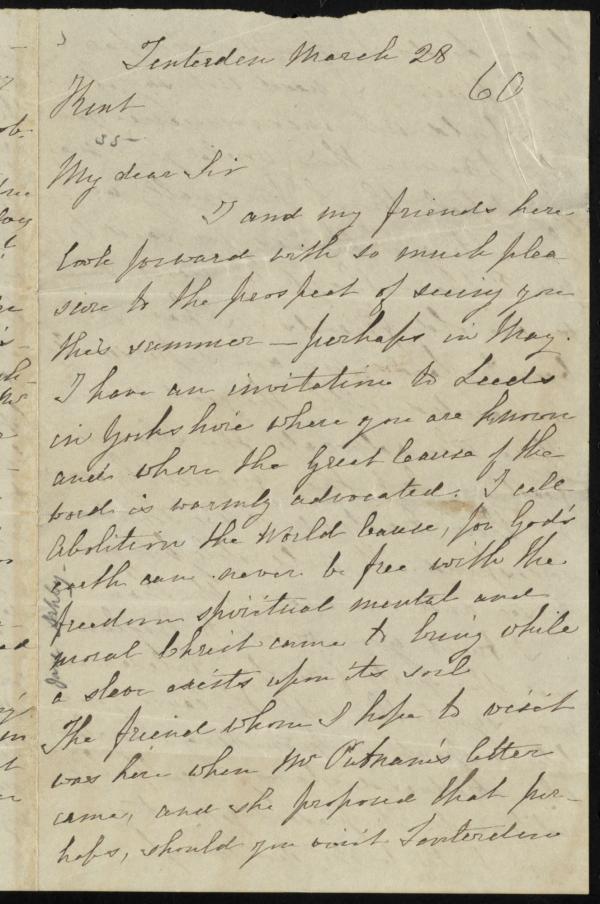 Tenterden March 28
60
Kent
35-
My dear Sir
I and my friends here
look forward with so much plea
sure to the prospect of seeing you
this summer — perhaps in May.
I have an invitation to Leeds
in Yorkshire where you are known
and where the Great Cause of the
word is warmly advocated. I call
Abolition the World Cause, for God's
earth can never be free with the
freedom spiritual mental and
moral Christ came to bring while
a slave exists upon its soil
The friend whom I hope to visit
was here when Mr Putnam's letter
came, and she proposed that per-
haps, should you visit Tenterden
Jane Ashby.